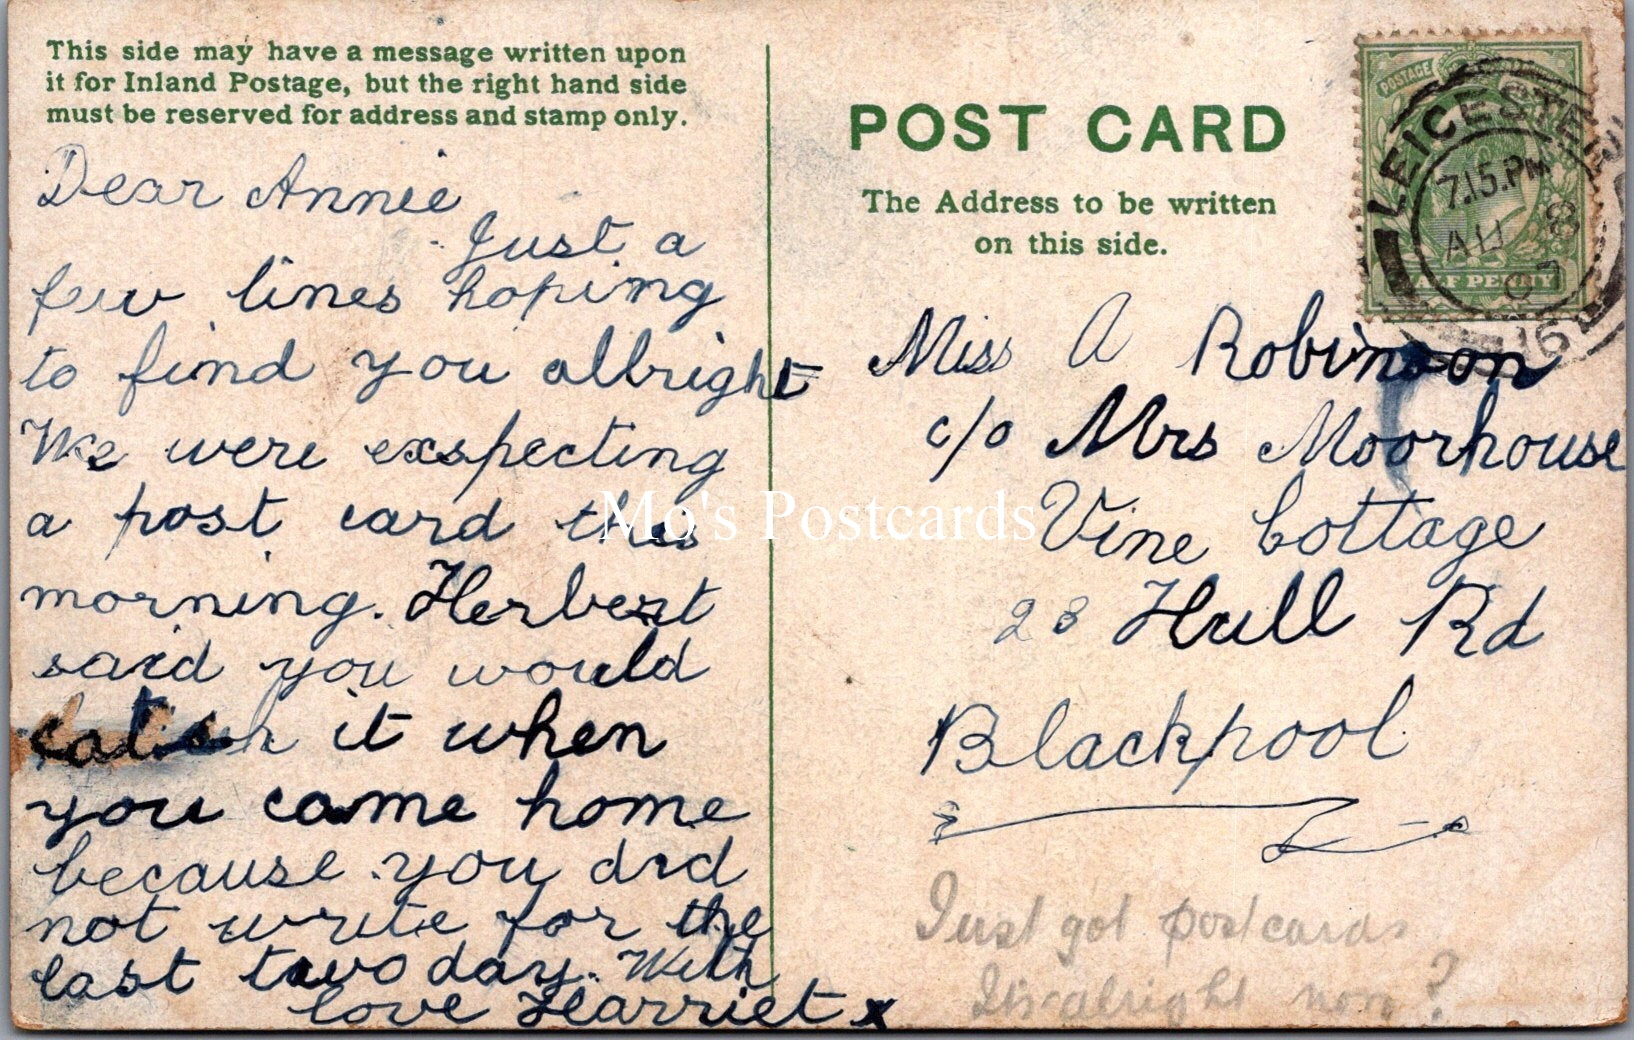 This side may have a message written upon
it for Inland Postage, but the right hand side
must be reserved for address and stamp only.
Dear Annie
Just a
few lines hoping
to find you allbright
We were exspecting
a post card this
morning. Herbert
said you would
catch it when
you come home
because you did
not write for the
last two day. With
love Harriet x
POST CARD
The Address to be written
on this side.
POSTAGE
HALF PENNY
LEICESTER
7.15.PM
AU 8
07
Miss A Robinson
c/o Mrs Moorhouse
Vine Cottage
23 Hull Rd
Blackpool
Just got postcards
Its alright now?
Mo's Postcards